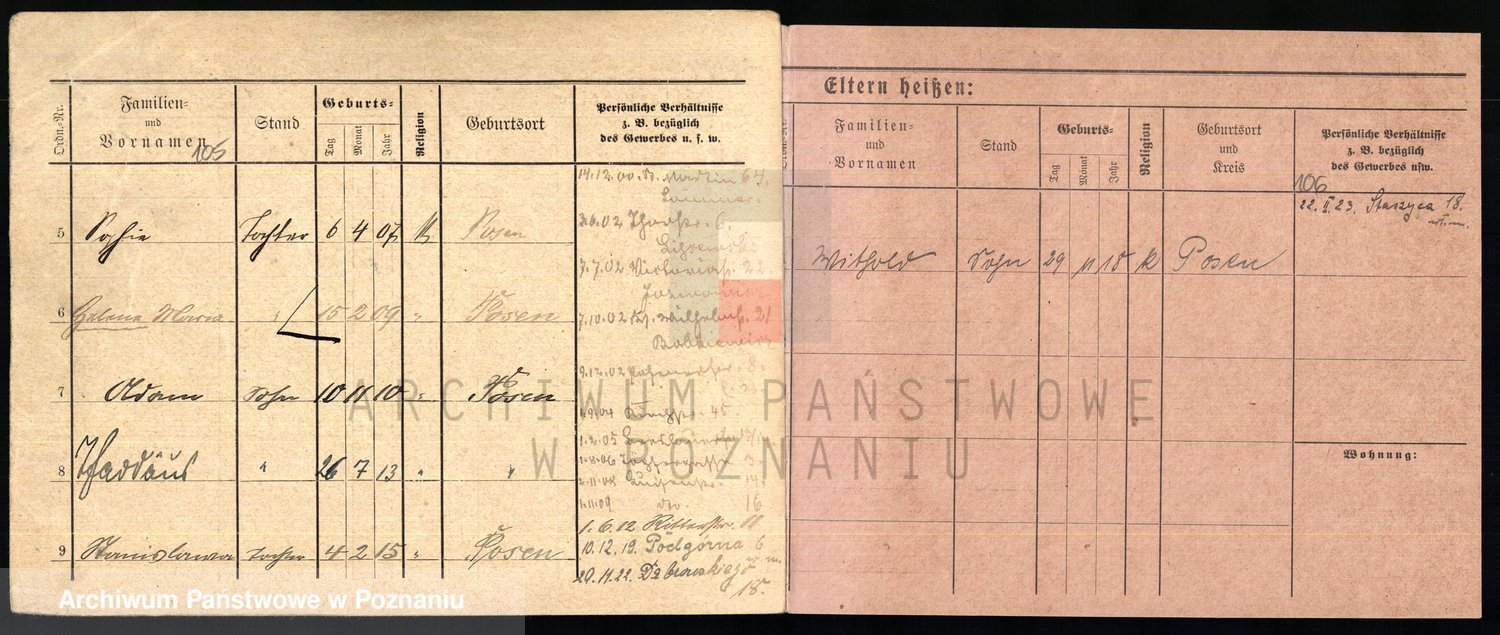 Ordn.-Nr.
Familien-
und
Vornamen
105
Stand
Geburts-
Tag
Monat
Jahr
Religion
Geburtsort
Persönliche Verhältnisse
z. B. bezüglich
des Gewerbes u. s. w.
14.12.00. Martin 64.
5 Sophie Tochter 6 4 07 K Posen
3.6.02 6
7.7.02 Victoriast. 22.
6 Helena Maria " 15 2 09 " Posen
7.10.02 Wilhelmst. 21
7 Adam Sohn 10 11 10 " Posen
9.12.02
45.
1.2.05
8 Thaddäus " 26 7 13 " "
1.8.06
2.11.08
1.11.09 do. 16
1.6.12 Ritterstr. 11
9 Stanislawa Tochter 4 2 15 " Posen
10.12.19. Podgórna 6
20.11.22. Dąbrowskiego
18.
Eltern heißen:
Ordn.-Nr.
Familien-
und
Vornamen
Stand
Geburts-
Tag
Monat
Jahr
Religion
Geburtsort
und
Kreis
Persönliche Verhältnisse
z. B. bezüglich
des Gewerbes usw.
106
22. II. 23. Staszyca 18.
Withold Sohn 29 11 18 K Posen
Wohnung:
ARCHIWUM PAŃSTWOWE
W POZNANIU
Archiwum Państwowe w Poznaniu